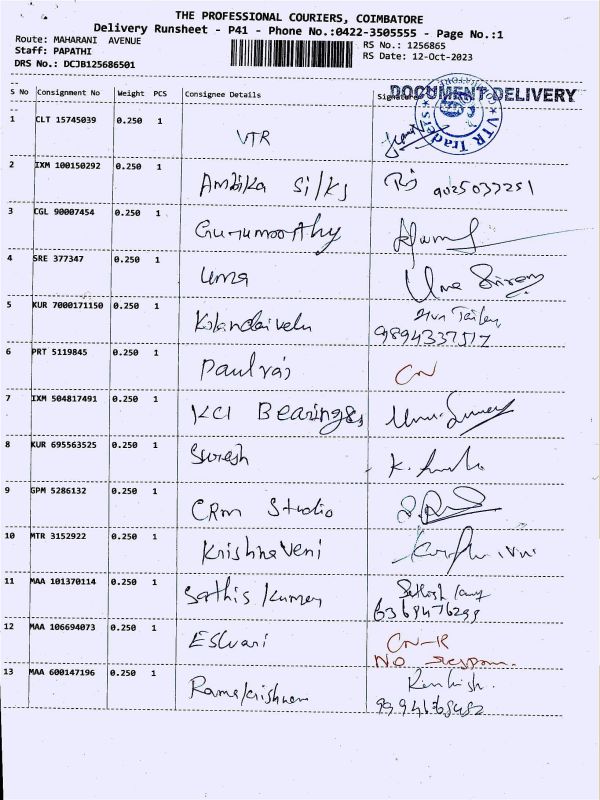 THE PROFESSIONAL COURIERS, COIMBATORE
Delivery Runsheet - P41 - Phone No.:0422-3505555 - Page No.:1
Route: MAHARANI AVENUE
RS No.: 1256865
Staff: PAPATHI
RS Date: 12-Oct-2023
DRS No.: DCJB125686501
S No Consignment No Weight PCS Consignee Details Signature
DOCUMENT DELIVERY
VTR Traders
1 CLT 15745039 0.250 1 VTR
2 IXM 100150292 0.250 1 Ambika Silks 9025037251
3 CGL 90007454 0.250 1 Gurumoorthy
4 SRE 377347 0.250 1 Uma Uma
5 KUR 7000171150 0.250 1 Kolandaivelu
9894337517
6 PRT 5119845 0.250 1 Paulraj CN
7 IXM 504817491 0.250 1 KCI Bearings
8 KUR 695563525 0.250 1 Suresh K.
9 GPM 5286132 0.250 1 CRM Studio
10 MTR 3152922 0.250 1 Krishnaveni
11 MAA 101370114 0.250 1 Sathis Kumar
6369476299
12 MAA 106694073 0.250 1 Eswari CN-R
NO
13 MAA 600147196 0.250 1 Ramakrishnan